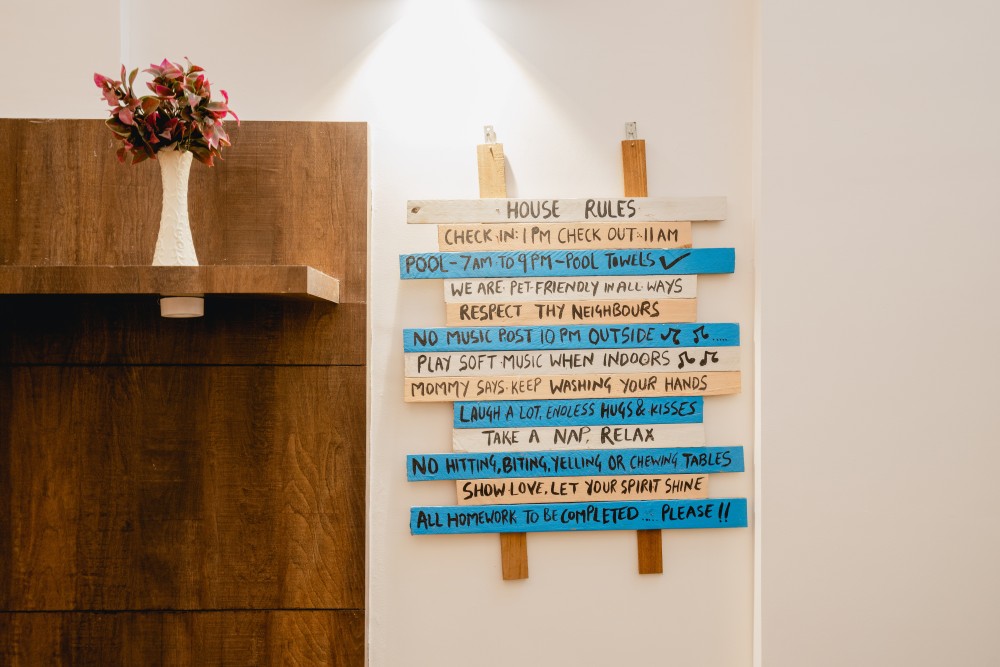 HOUSE RULES
CHECK IN: 1 PM CHECK OUT: 11 AM
POOL - 7AM TO 9PM - POOL TOWELS ✓
WE ARE PET-FRIENDLY IN ALL WAYS
RESPECT THY NEIGHBOURS
NO MUSIC POST 10 PM OUTSIDE ♫ ♫ ....
PLAY SOFT MUSIC WHEN INDOORS ♫ ♫
MOMMY SAYS KEEP WASHING YOUR HANDS
LAUGH A LOT, ENDLESS HUGS & KISSES
TAKE A NAP, RELAX
NO HITTING, BITING, YELLING OR CHEWING TABLES
SHOW LOVE, LET YOUR SPIRIT SHINE
ALL HOMEWORK TO BE COMPLETED .... PLEASE !!